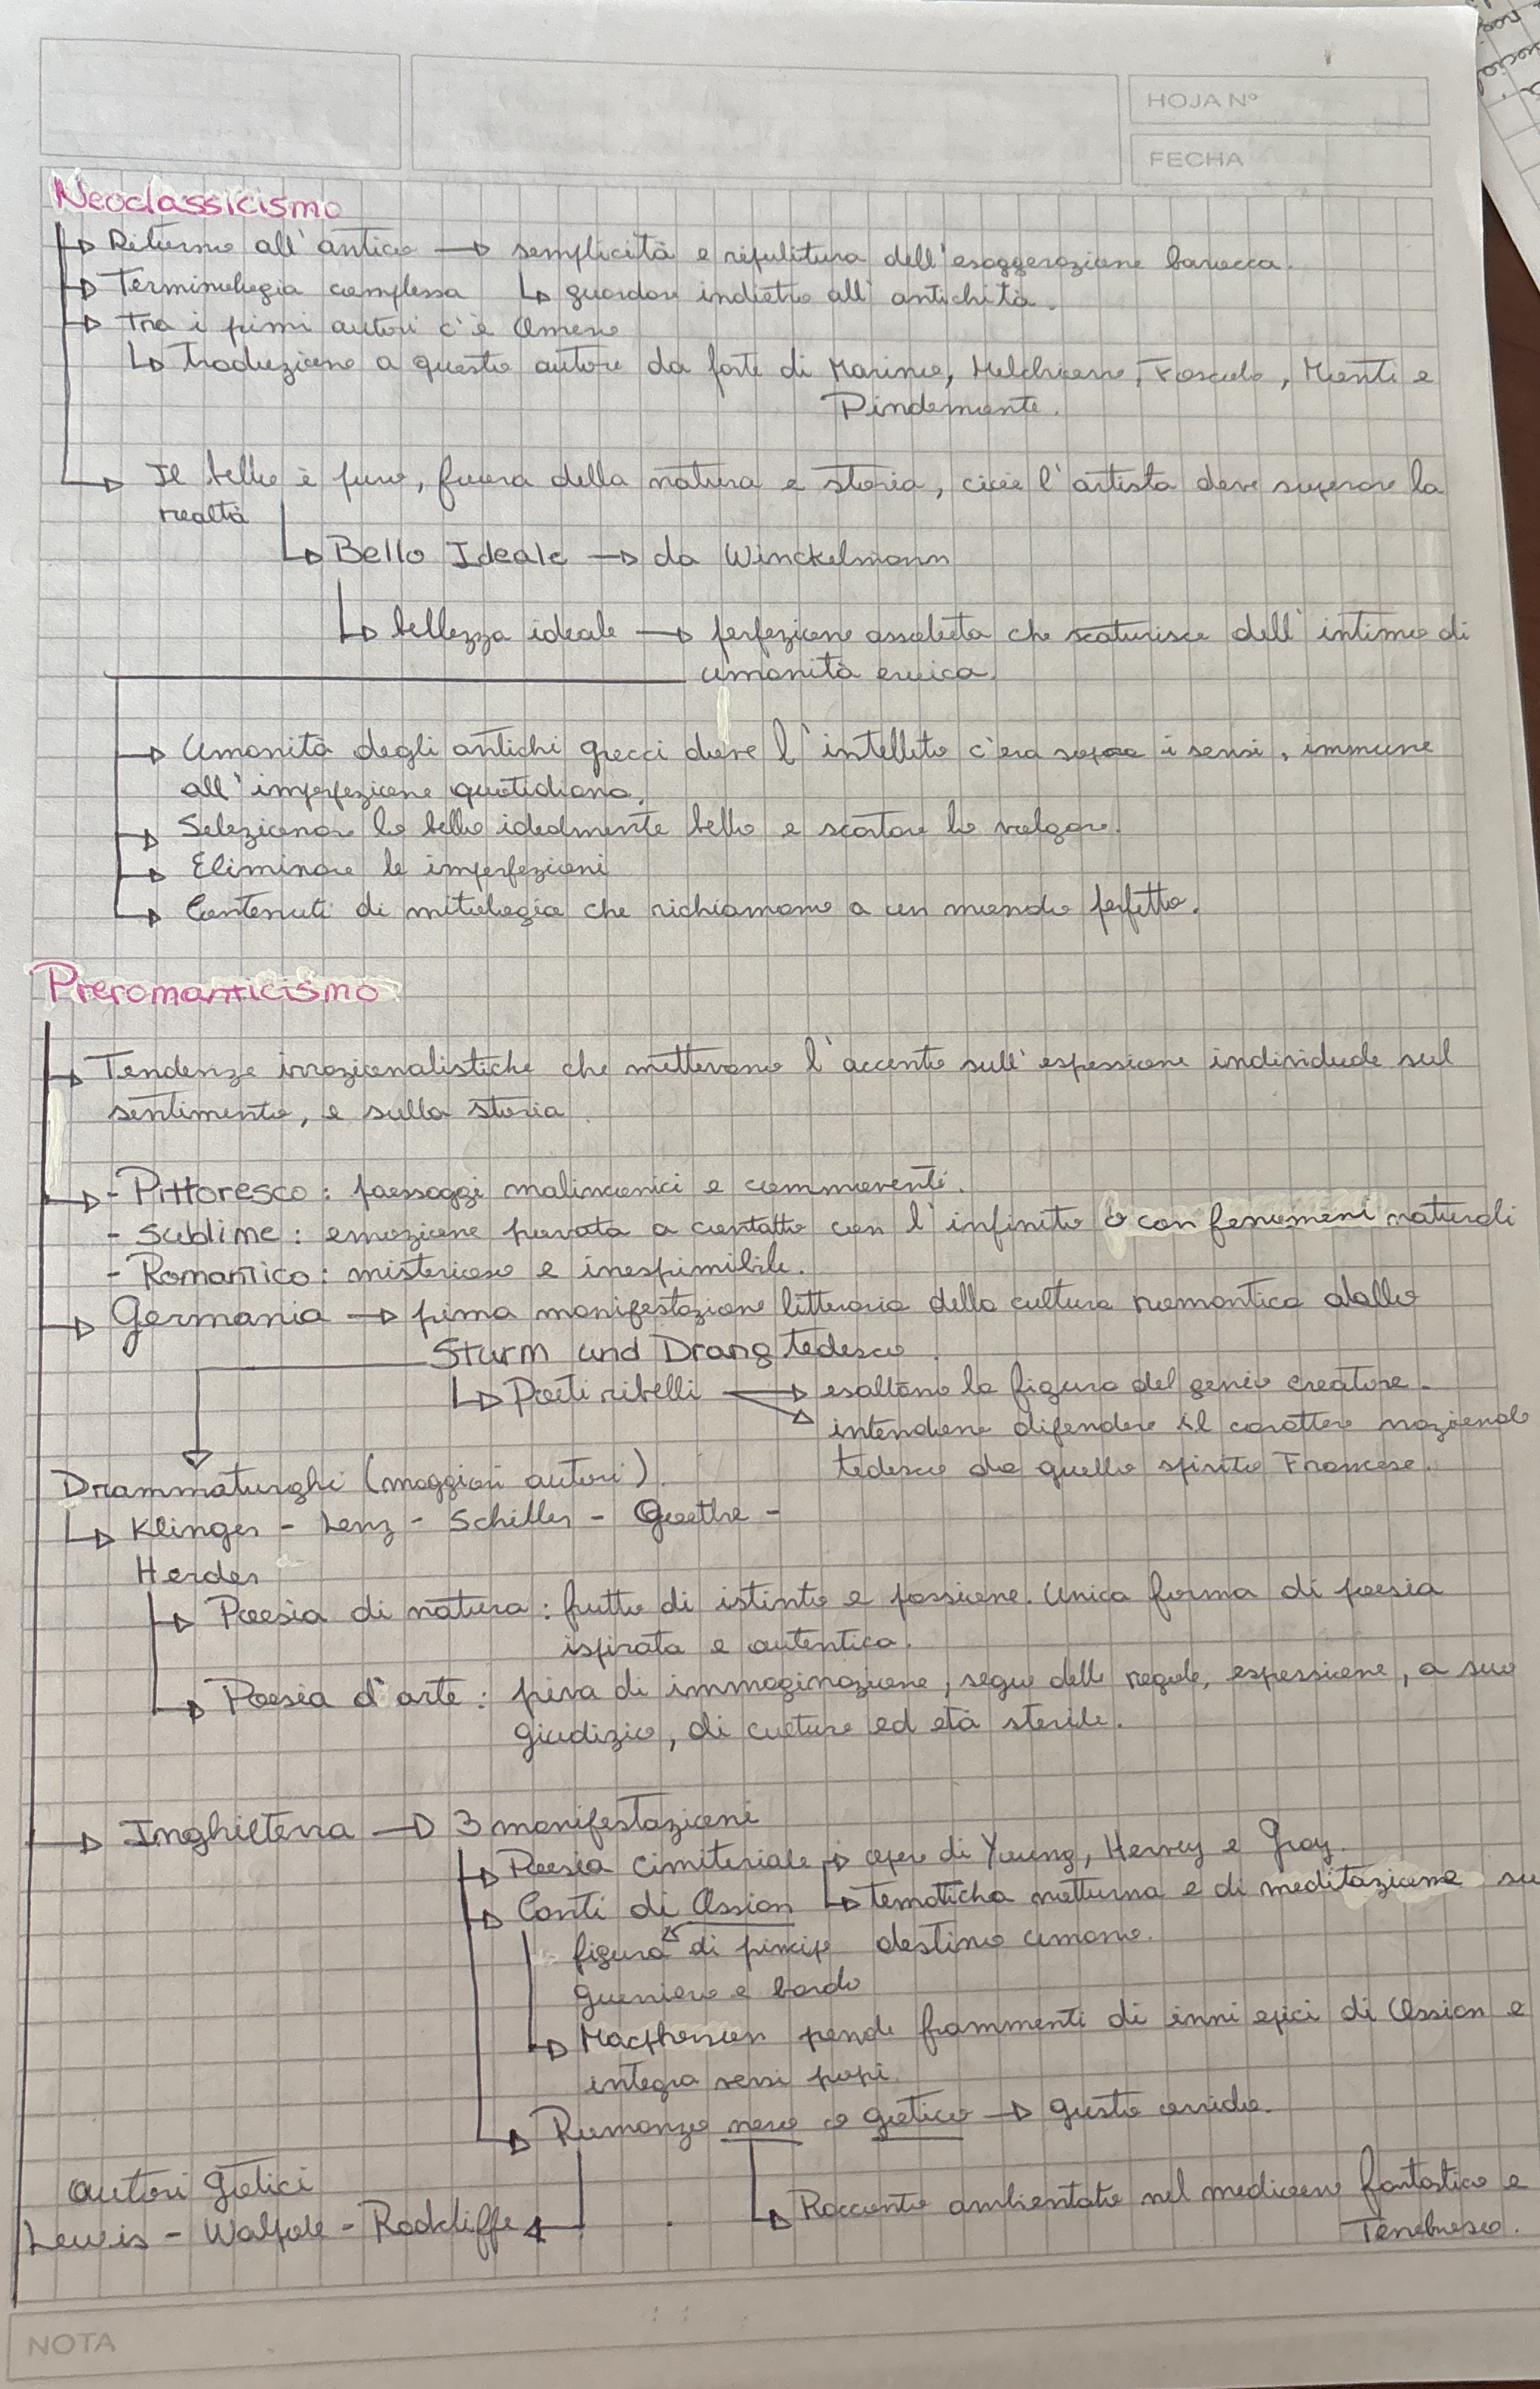 HOJA Nº
FECHA
Neoclassicismo
Ritorno all'antico → semplicità e ripulitura dell'esagerazione barocca.
Terminologia complessa ↳ guardare indietro all'antichità.
Tra i primi autori c'è Omero
↳ traduzione a questo autore da parte di Marino, Melchiorre, Foscolo, Monti e
Pindemonte.
Il bello è puro, fuora della natura e storia, cioè l'artista deve superare la
realtà
↳ Bello Ideale → da Winckelmann
↳ bellezza ideale → perfezione assoluta che scaturisce dell'intimo di
umanità eroica.
Umanità degli antichi grecci dove l'intelleto c'era sopra i sensi, immune
all'imperfezione quotidiana.
Selezionare lo bello idealmente bello e scartare lo volgare.
Eliminare le imperfezioni
Contenuti di mitologia che richiamano a un mondo perfetto.
Preromanticismo
Tendenze irrazionalistiche che mettevano l'accento sull'espessione individuale sul
sentimento, e sulla storia.
- Pittoresco: paesaggi malinconici e commoventi.
- Sublime: emozione provata a contatto con l'infinito o con fenomeni naturali
- Romantico: misterioso e inespimibile.
Germania → prima manifestazione litteraria della cultura romantica dallo
Sturm und Drang tedesco.
↳ Poeti ribelli → esaltano la figura del genio creatore.
intendono difendere il carattere nazionale
tedesco da quello spirito Francese.
Drammaturghi (maggiori autori).
↳ Klinger - Lenz - Schiller - Goethe -
Herder
Poesia di natura: frutto di istinto e passione. Unica forma di poesia
ispirata e autentica.
Poesia d'arte: priva di immaginazione, segue delle regole, espessione, a suo
giudizio, di culture ed età sterile.
Inghilterra → 3 manifestazioni
Poesia cimiteriale → opere di Young, Hervey e Gray.
Canti di Ossian ↳ tematicha notturna e di meditazione su
figura di principe destino umano.
guerriero e bardo
Macpherson prende frammenti di inni epici di Ossian e
integra versi propi.
Romanzo nero o gotico → gusto orrido.
autori gotici
Racconto ambientato nel medioevo fantastico e
Lewis - Walpole - Radcliffe
Tenebroso.
NOTA